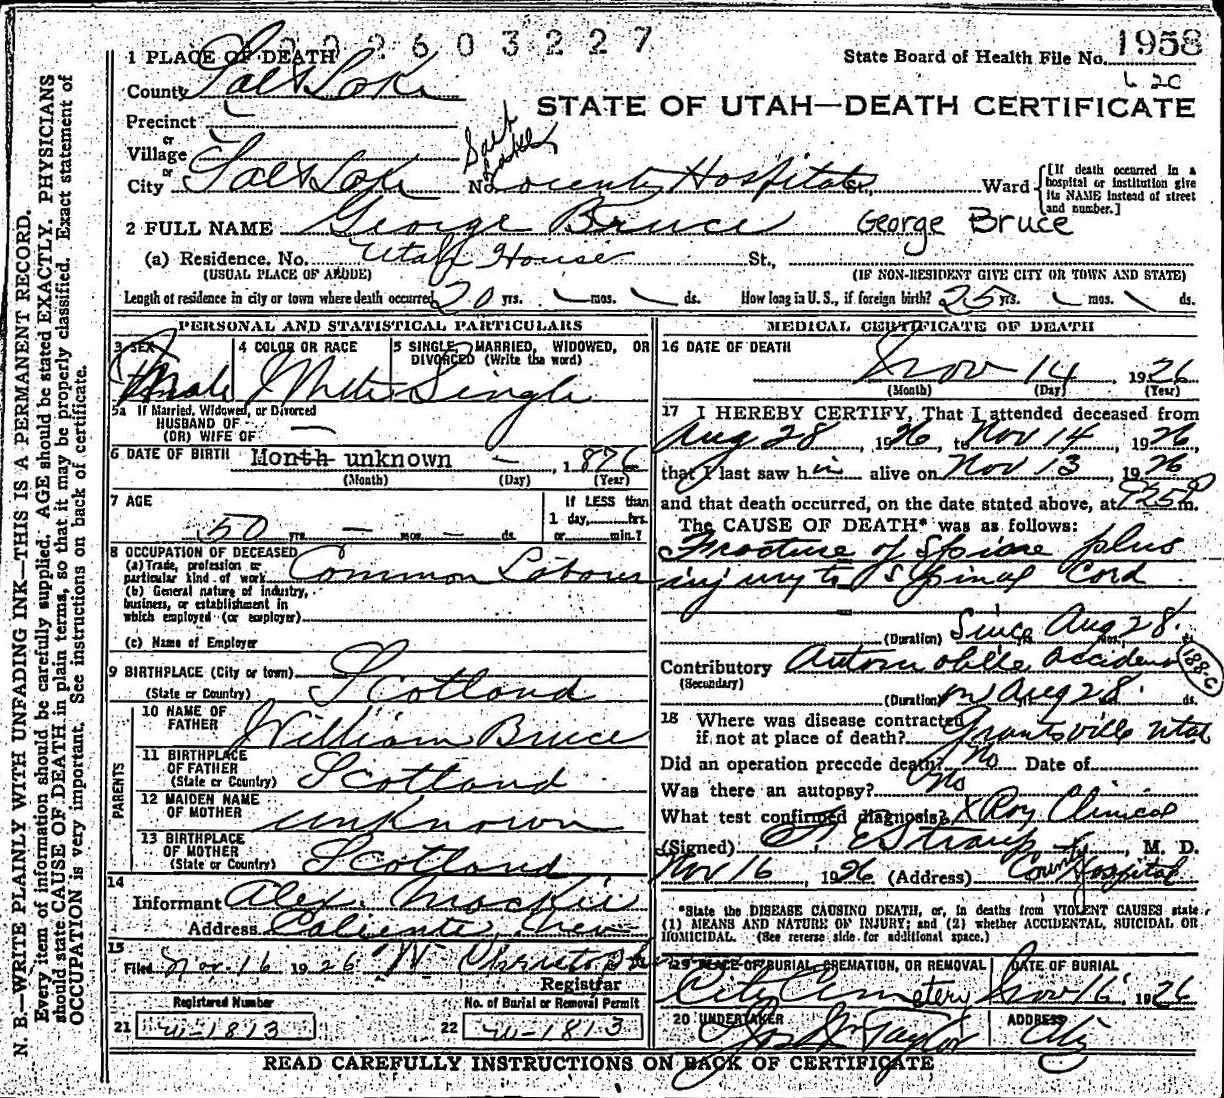 002603227
1 PLACE OF DEATH
State Board of Health File No. 1958
County Salt Lake
STATE OF UTAH—DEATH CERTIFICATE
Precinct
or
Village
or
Salt Lake
City Salt Lake No. County Hospital St., Ward
[If death occurred in a hospital or institution give its NAME instead of street and number.]
2 FULL NAME George Bruce George Bruce
(a) Residence, No. Utah House St.,
(USUAL PLACE OF ABODE) (IF NON-RESIDENT GIVE CITY OR TOWN AND STATE)
Length of residence in city or town where death occurred 20 yrs. mos. ds. How long in U. S., if foreign birth? 25 yrs. mos. ds.
PERSONAL AND STATISTICAL PARTICULARS
3 SEX 4 COLOR OR RACE 5 SINGLE, MARRIED, WIDOWED, OR DIVORCED (Write the word)
Male White Single
5a If Married, Widowed, or Divorced
HUSBAND OF
(OR) WIFE OF
6 DATE OF BIRTH Month unknown , 1876
(Month) (Day) (Year)
7 AGE If LESS than
1 day, hrs.
50 yrs. mos. ds. or min.?
8 OCCUPATION OF DECEASED
(a) Trade, profession or particular kind of work Common Labour
(b) General nature of industry, business, or establishment in which employed (or employer)
(c) Name of Employer
9 BIRTHPLACE (City or town)
(State or Country) Scotland
PARENTS
10 NAME OF FATHER William Bruce
11 BIRTHPLACE OF FATHER (State or Country) Scotland
12 MAIDEN NAME OF MOTHER unknown
13 BIRTHPLACE OF MOTHER (State or Country) Scotland
14
Informant Alex Mackie
Address Caliente, Nev
15
Filed Nov. 16 1926 W Christoph
Registrar
Registered Number No. of Burial or Removal Permit
21 W-1813 22 W-1813
MEDICAL CERTIFICATE OF DEATH
16 DATE OF DEATH
Nov 14, 1926
(Month) (Day) (Year)
17 I HEREBY CERTIFY, That I attended deceased from
Aug 28, 1926, to Nov 14, 1926,
that I last saw him alive on Nov 13, 1926
and that death occurred, on the date stated above, at 925P m.
The CAUSE OF DEATH* was as follows:
Fracture of Spine plus
injury to Spinal Cord
(Duration) Since Aug 28.
Contributory Automobile accident
188-C
(Secondary)
(Duration) on Aug 28. ds.
18 Where was disease contracted
if not at place of death? Grantsville Utah
Did an operation precede death? No Date of
Was there an autopsy? No
What test confirmed diagnosis? X Ray Clinical
(Signed) Straup, M. D.
Nov 16, 1926 (Address) County Hospital
*State the DISEASE CAUSING DEATH, or, in deaths from VIOLENT CAUSES state
(1) MEANS AND NATURE OF INJURY; and (2) whether ACCIDENTAL, SUICIDAL OR
HOMICIDAL. (See reverse side for additional space.)
19 PLACE OF BURIAL, CREMATION, OR REMOVAL DATE OF BURIAL
City Cemetery Nov 16, 1926
20 UNDERTAKER ADDRESS
Taylor City
READ CAREFULLY INSTRUCTIONS ON BACK OF CERTIFICATE
N. B.—WRITE PLAINLY WITH UNFADING INK—THIS IS A PERMANENT RECORD.
Every item of information should be carefully supplied. AGE should be stated EXACTLY. PHYSICIANS
should state CAUSE OF DEATH in plain terms, so that it may be properly classified. Exact statement of
OCCUPATION is very important. See instructions on back of certificate.